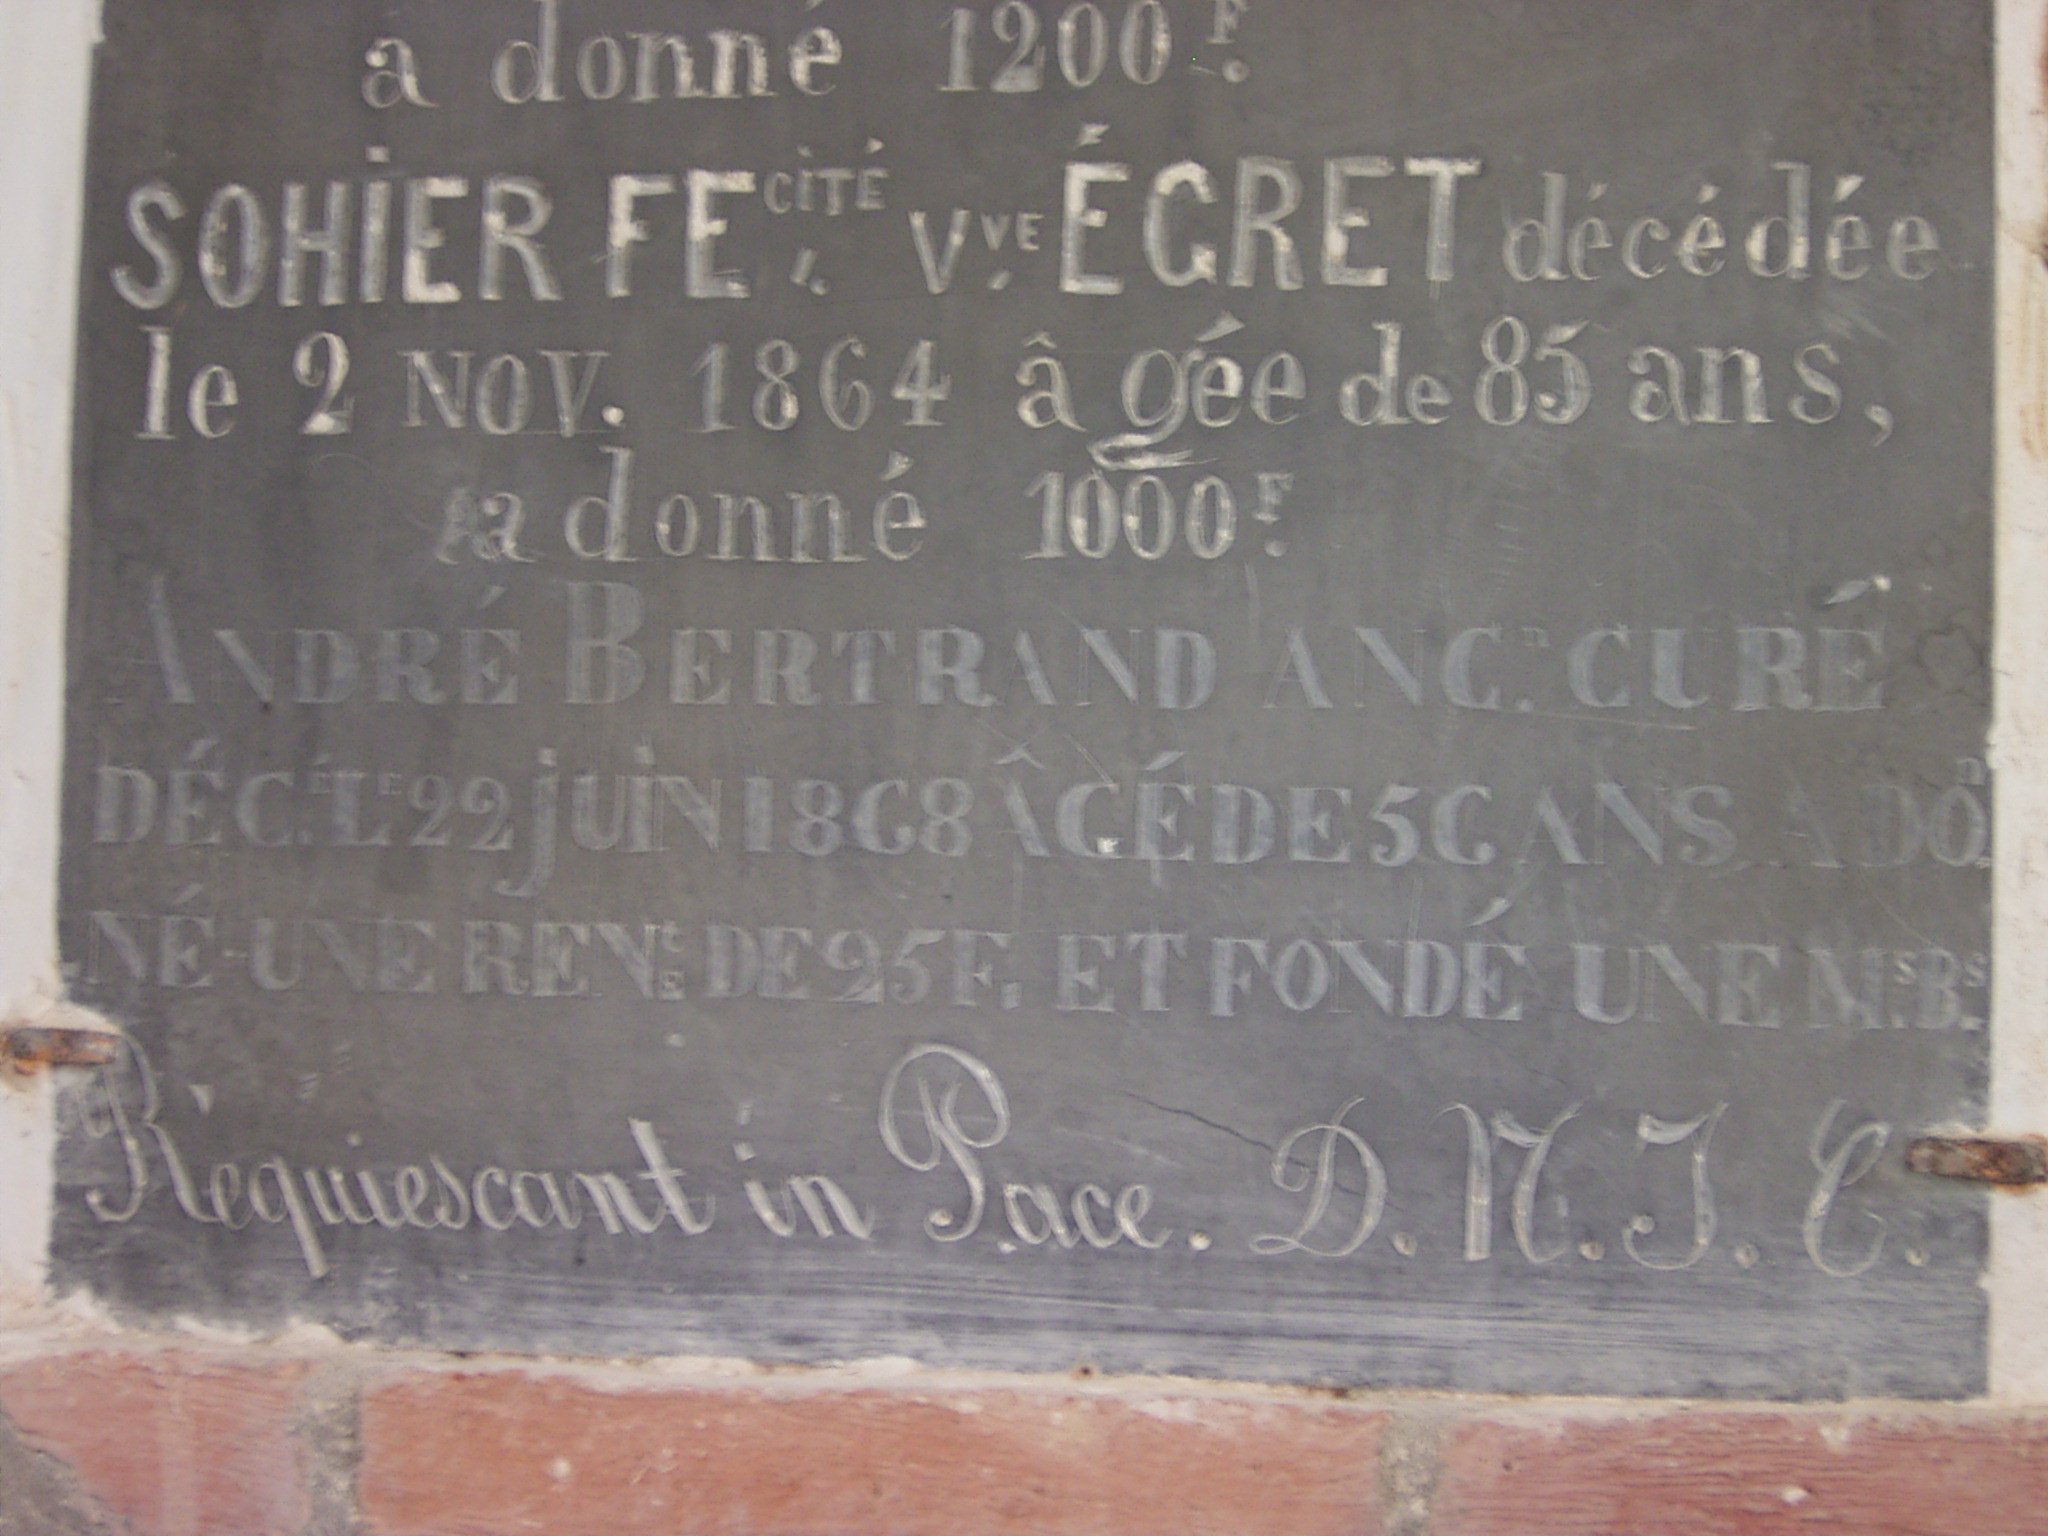 a donné 1200F.
SOHIER FECITÉ. VVE. ÉGRET décédée
le 2 NOV. 1864 âgée de 85 ans,
a donné 1000F.
ANDRÉ BERTRAND ANCN. CURÉ
DÉC.É LE 22 jUiN 1868 ÂGÉ DE 56 ANS A DÔN.
NÉ UNE REN DE 25 F. ET FONDÉ UNE MS. BS.
Requiescant in Pace. D. N. J. C.